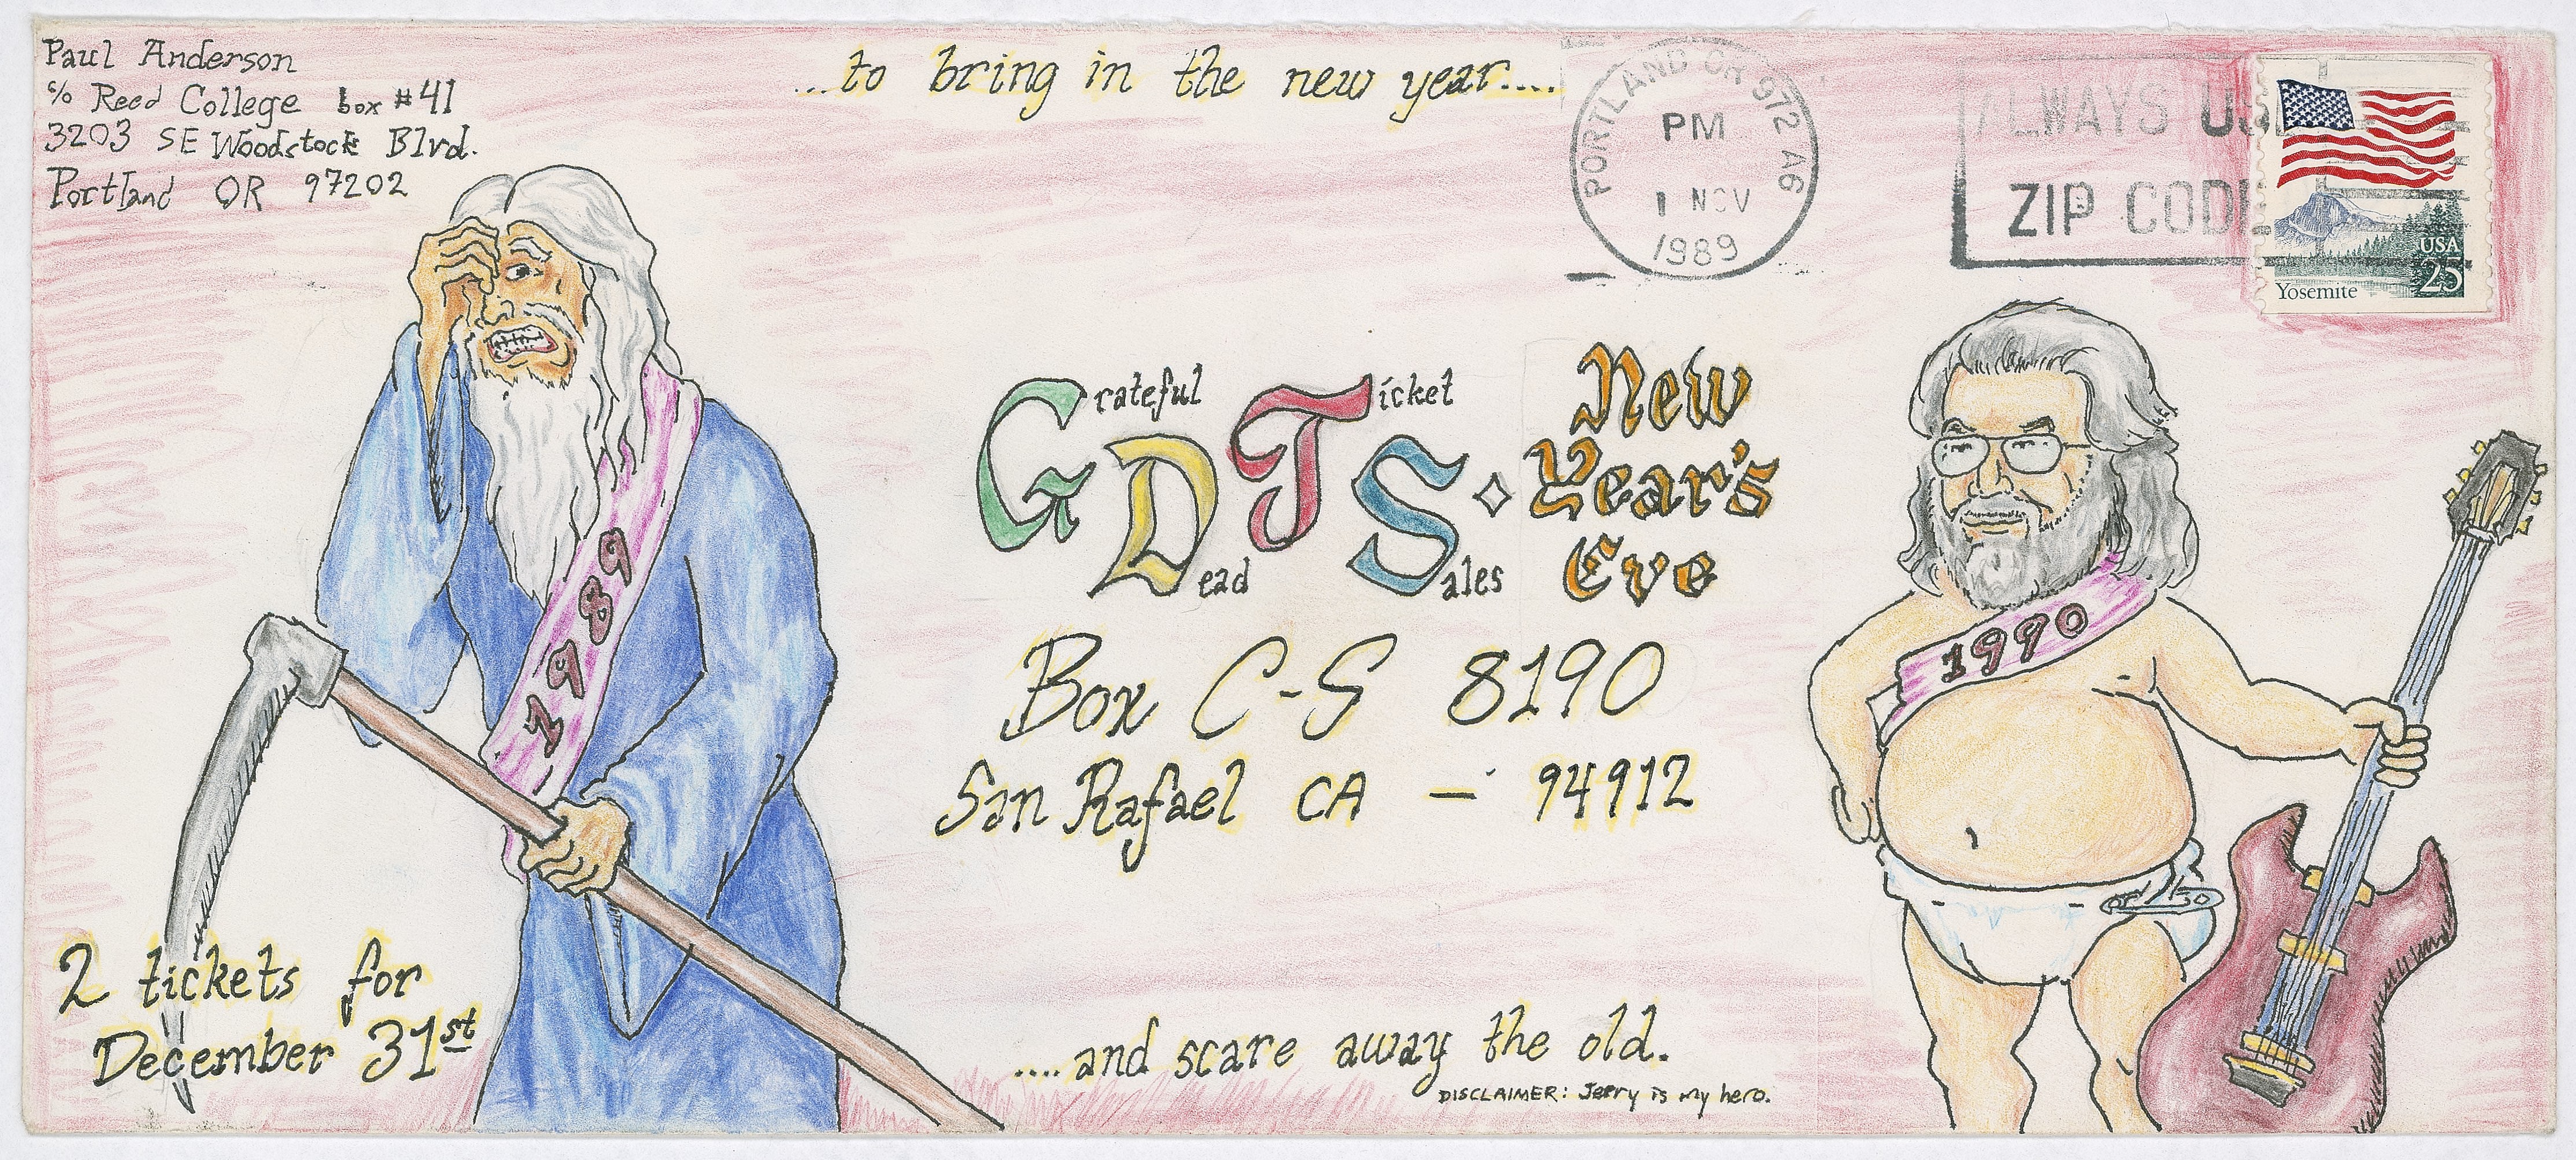 Paul Anderson
c/o Reed College box #41
3203 SE Woodstock Blvd.
Portland OR 97202
...to bring in the new year....
PORTLAND OR 972 A6
PM
1 NOV
1989
ALWAYS USE
ZIP CODE
USA
25
Yosemite
Grateful Dead Ticket Sales
New
Year's
Eve
Box C-S 8190
San Rafael CA — 94912
1989
1990
2 tickets for
December 31st
....and scare away the old.
DISCLAIMER: Jerry is my hero.